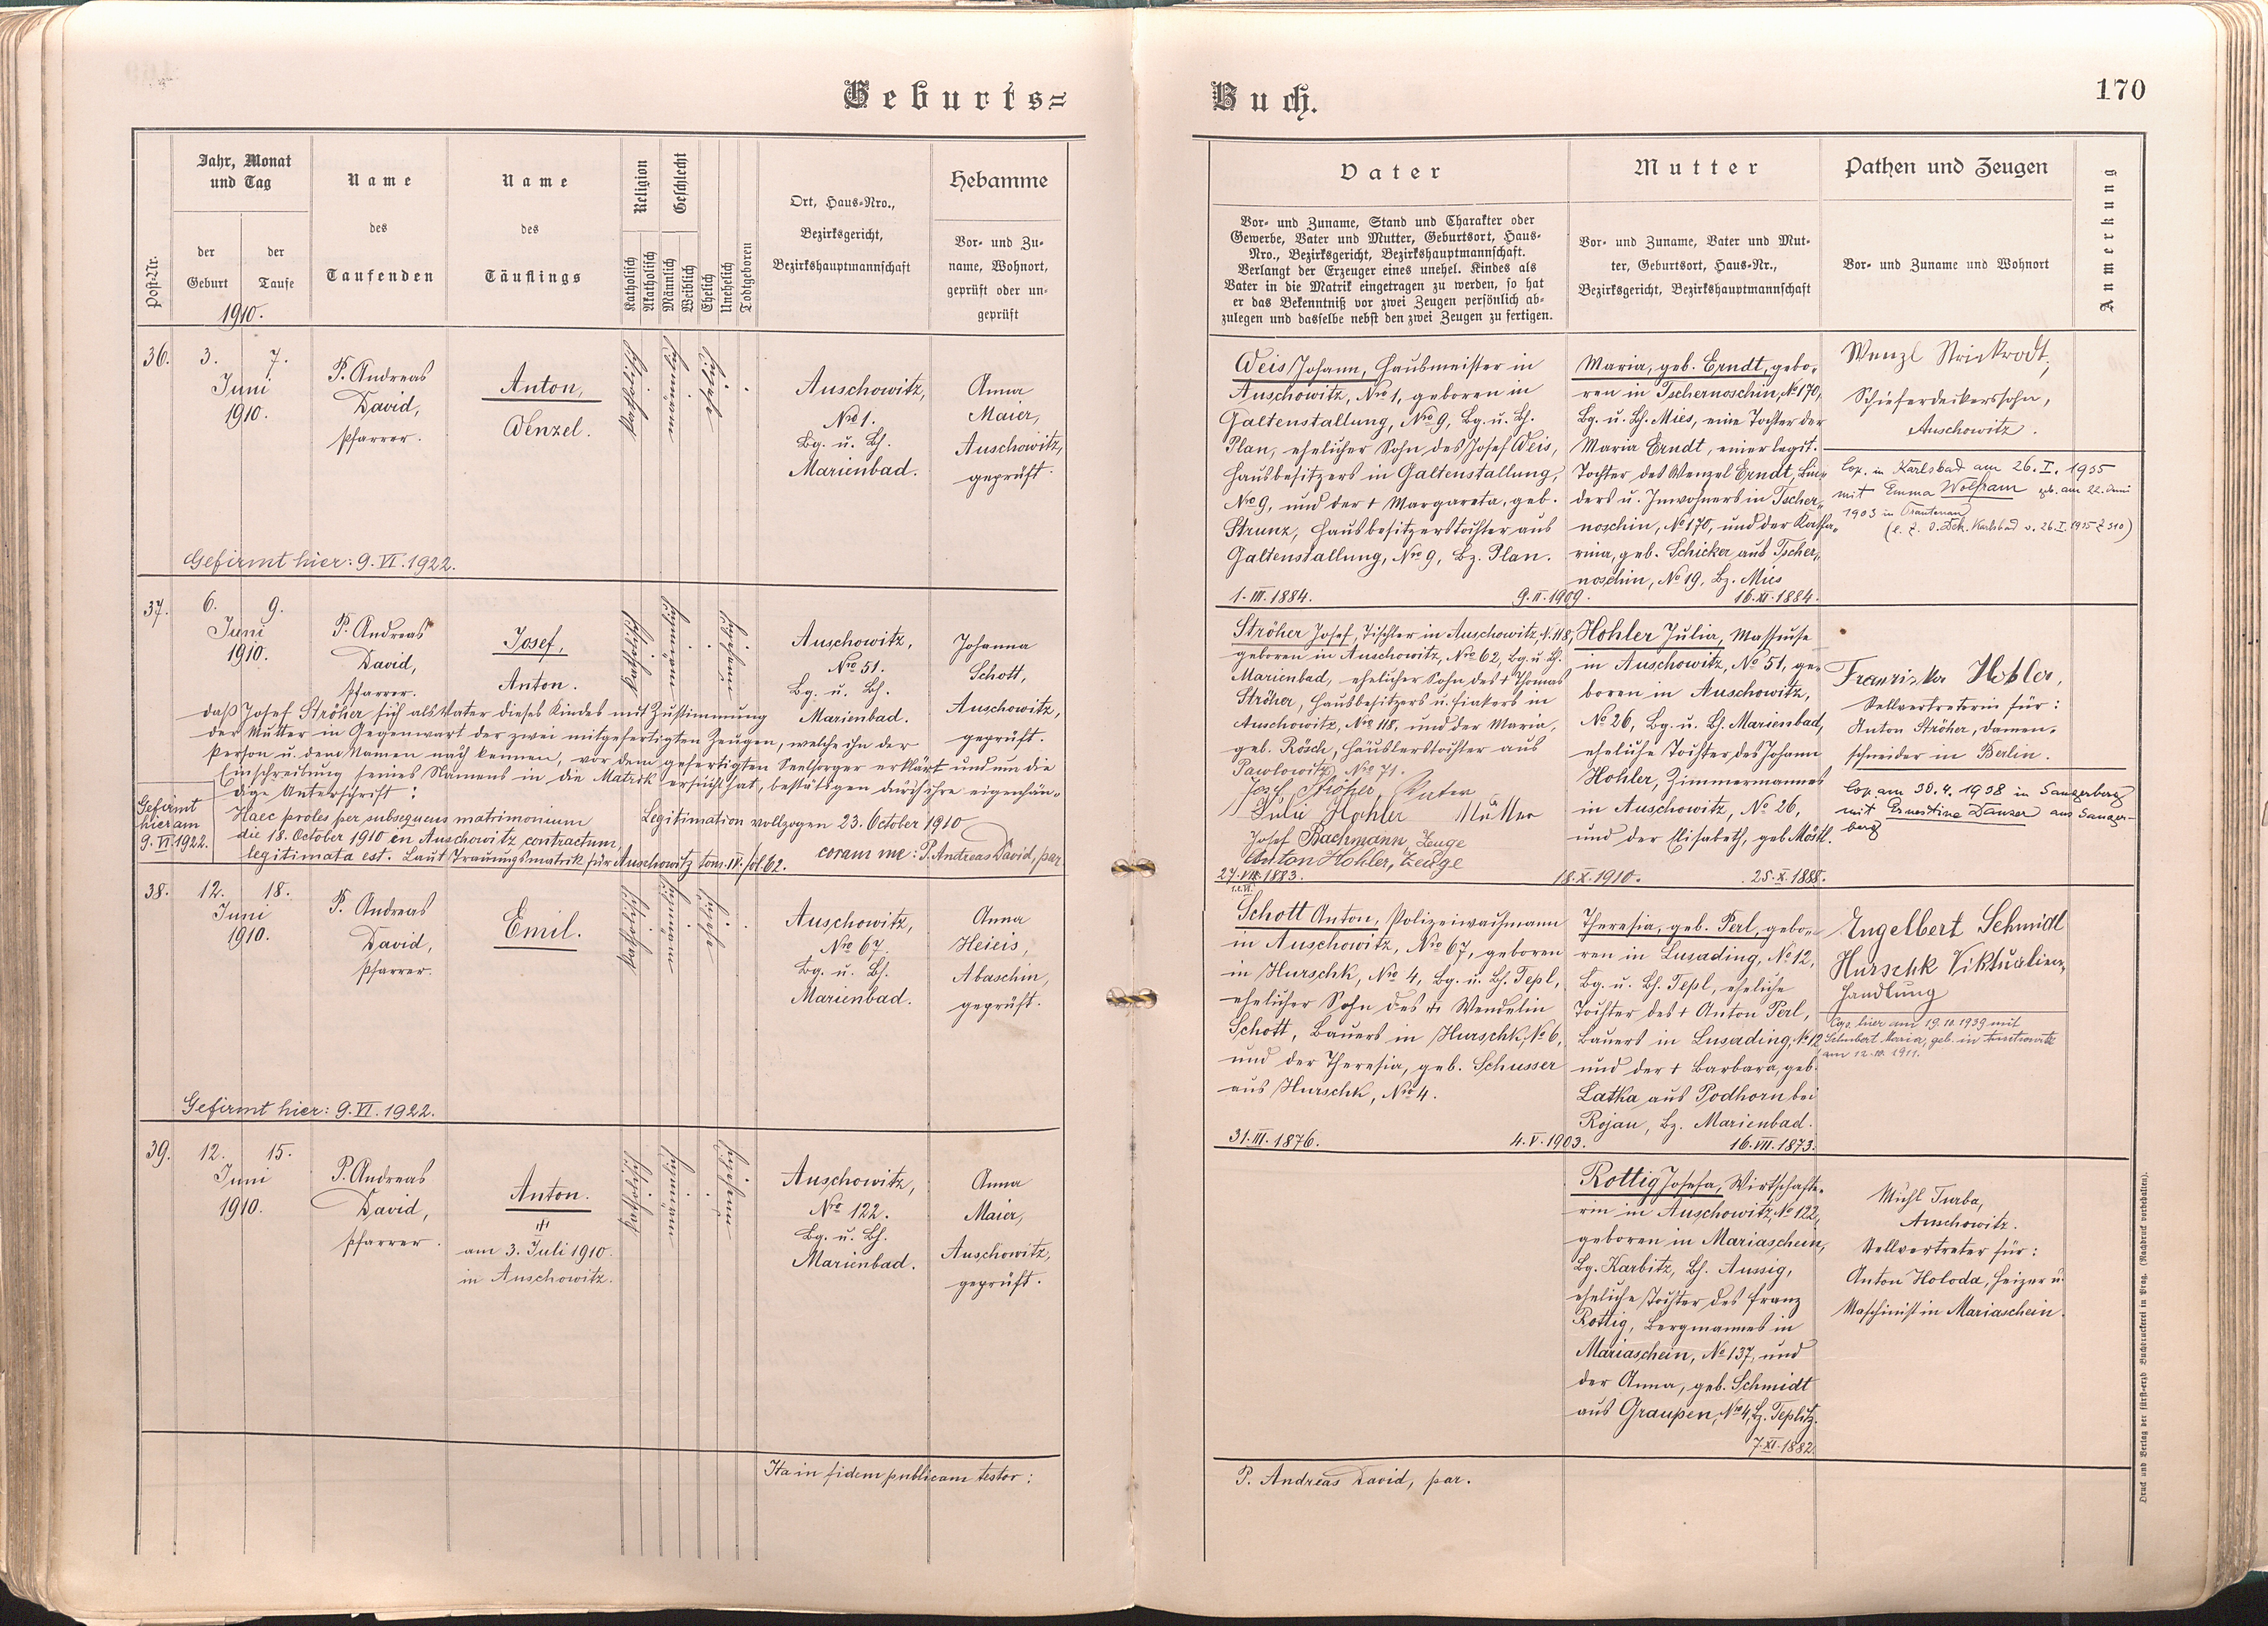 Geburts=
Buch.
170
Post-Nr.
Jahr, Monat
und Tag
der
Geburt
der
Taufe
1910.
Name
des
Taufenden
Name
des
Täuflings
Religion
Katholisch
Akatholisch
Geschlecht
Männlich
Weiblich
Ehelich
Unehelich
Todtgeboren
Ort, Haus-Nro.,
Bezirksgericht,
Bezirkshauptmannschaft
Hebamme
Vor- und Zu-
name, Wohnort,
geprüft oder un-
geprüft
Vater
Vor- und Zuname, Stand und Charakter oder
Gewerbe, Vater und Mutter, Geburtsort, Haus-
Nro., Bezirksgericht, Bezirkshauptmannschaft.
Verlangt der Erzeuger eines unehel. Kindes als
Vater in die Matrik eingetragen zu werden, so hat
er das Bekenntniß vor zwei Zeugen persönlich ab-
zulegen und dasselbe nebst den zwei Zeugen zu fertigen.
Mutter
Vor- und Zuname, Vater und Mut-
ter, Geburtsort, Haus-Nr.,
Bezirksgericht, Bezirkshauptmannschaft
Pathen und Zeugen
Vor- und Zuname und Wohnort
Anmerkung
36.
3.
7.
Juni
1910.
P. Andreas
David,
Pfarrer.
Anton,
Wenzel.
katholisch
männlich
ehelich
Auschowitz,
Nro 1.
Bg. u. Bh.
Marienbad.
Anna
Maier,
Auschowitz,
geprüft.
Gefirmt hier: 9. VI. 1922.
Weis Johann, Hausmeister in
Auschowitz, Nro 1, geboren in
Galtenstallung, Nro 9, Bg. u. Bh.
Plan, ehelicher Sohn des Josef Weis,
Hausbesitzers in Galtenstallung,
Nro 9, und der + Margareta, geb.
Strunz, Hausbesitzerstochter aus
Galtenstallung, Nro 9, Bz. Plan.
1. III. 1884.
9. II. 1909.
Maria, geb. Erndt, gebo-
ren in Tschernoschin, No 170,
Bg. u. Bh. Mies, eine Tochter der
Maria Erndt, einer legit.
Tochter des Wenzel Erndt, Bin-
ders u. Inwohners in Tscher-
noschin, No 170, und der Katha-
rina, geb. Schicker aus Tscher-
noschin, No 19, Bz. Mies
16. XI. 1884.
Wenzl Strickrodt,
Schieferdeckerssohn,
Auschowitz.
Cop. in Karlsbad am 26. I. 1935
mit Emma Wolfram geb. am 22. Juni
1903 in Trautenau
37.
6.
9.
Juni
1910.
P. Andreas
David,
Pfarrer.
Josef,
Anton.
katholisch
männlich
unehelich
Auschowitz,
Nro 51.
Bg. u. Bh.
Marienbad.
Johanna
Schott,
Auschowitz,
geprüft.
daß Josef Ströher sich als Vater dieses Kindes mit Zustimmung
der Mutter in Gegenwart der zwei mitgefertigten Zeugen, welche ihn der
Person u. dem Namen nach kennen, vor dem gefertigten Seelsorger erklärt und um die
Einschreibung seines Namens in die Matrik ersucht hat, bestätigen durch ihre eigenhän-
dige Unterschrift:
Gefirmt
hier am
9. VI. 1922.
Haec proles per subsequens matrimonium
die 18. October 1910 in Auschowitz contractum,
legitimata est. Laut Trauungsmatrik für Auschowitz tom. IV. fol. 62.
Legitimation vollzogen 23. October 1910
coram me: P. Andreas David, par
Ströher Josef, Tischler in Auschowitz N. 118,
geboren in Auschowitz, Nro 62, Bg. u. Bh.
Marienbad, ehelicher Sohn des + Thomas
Ströher, Hausbesitzers u. Fiakers in
Auschowitz, Nro 118, und der Maria,
geb. Rösch, Häuslerstochter aus
Pawlowitz, Nro 71.
Josef Ströher, Vater
Julie Hohler Mutter
Josef Bachmann, Zeuge
Anton Hohler, Zeuge
27. VII. 1883.
18. X. 1910.
Hohler Julia, Masseuse
in Auschowitz, No 51, ge-
boren in Auschowitz,
No 26, Bg. u. Bh. Marienbad,
eheliche Tochter des Johann
Hohler, Zimmermannes
in Auschowitz, No 26,
und der Elisabeth, geb. Möstl.
25. X. 1888.
Franziska Hohler,
Stellvertreterin für:
Anton Ströher, Damen-
schneider in Berlin.
Cop. am 30. 4. 1938 in Sangerberg
mit Ernestine Danzer aus Sanger-
berg
38.
12.
18.
Juni
1910.
P. Andreas
David,
Pfarrer.
Emil.
katholisch
männlich
ehelich
Auschowitz,
Nro 67.
Bg. u. Bh.
Marienbad.
Anna
Heieis,
Abaschin,
geprüft.
Gefirmt hier: 9. VI. 1922.
Schott Anton, Polizeiwachmann
in Auschowitz, Nro 67, geboren
in Hurschk, Nro 4, Bg. u. Bh. Tepl,
ehelicher Sohn des + Wendelin
Schott, Bauers in Hurschk, No 6,
und der Theresia, geb. Schusser
aus Hurschk, Nro 4.
31. III. 1876.
4. V. 1903.
Theresia, geb. Perl, gebo-
ren in Lusading, No 12,
Bg. u. Bh. Tepl, eheliche
Tochter des + Anton Perl,
Bauers in Lusading, No 12
und der + Barbara, geb.
Latka aus Podhorn bei
Rojau, Bz. Marienbad.
16. VII. 1873.
Engelbert Schmidl
Hurschk Viktualien-
handlung
Cop. hier am 19. 10. 1939 mit
Schubert Maria, geb. in
39.
12.
15.
Juni
1910.
P. Andreas
David,
Pfarrer.
Anton.
am 3. Juli 1910.
in Auschowitz.
katholisch
männlich
unehelich
Auschowitz,
Nro 122.
Bg. u. Bh.
Marienbad.
Anna
Maier,
Auschowitz,
geprüft.
Rottig Josefa, Wirtschafte-
rin in Auschowitz, No 122,
geboren in Mariaschein,
Bg. Karbitz, Bh. Aussig,
eheliche Tochter des Franz
Rottig, Bergmannes in
Mariaschein, No 137, und
der Anna, geb. Schmidt
aus Graupen, Nro 4, Bz. Teplitz.
7. XI. 1882.
Michl Turba,
Auschowitz.
Stellvertreter für:
Anton Holoda, Heizer u.
Maschinist in Mariaschein.
Ita in fidem publicam testor:
P. Andreas David, par.
Druck und Verlag der fürst-erzb Buchdruckerei in Prag. (Nachdruck vorbehalten).